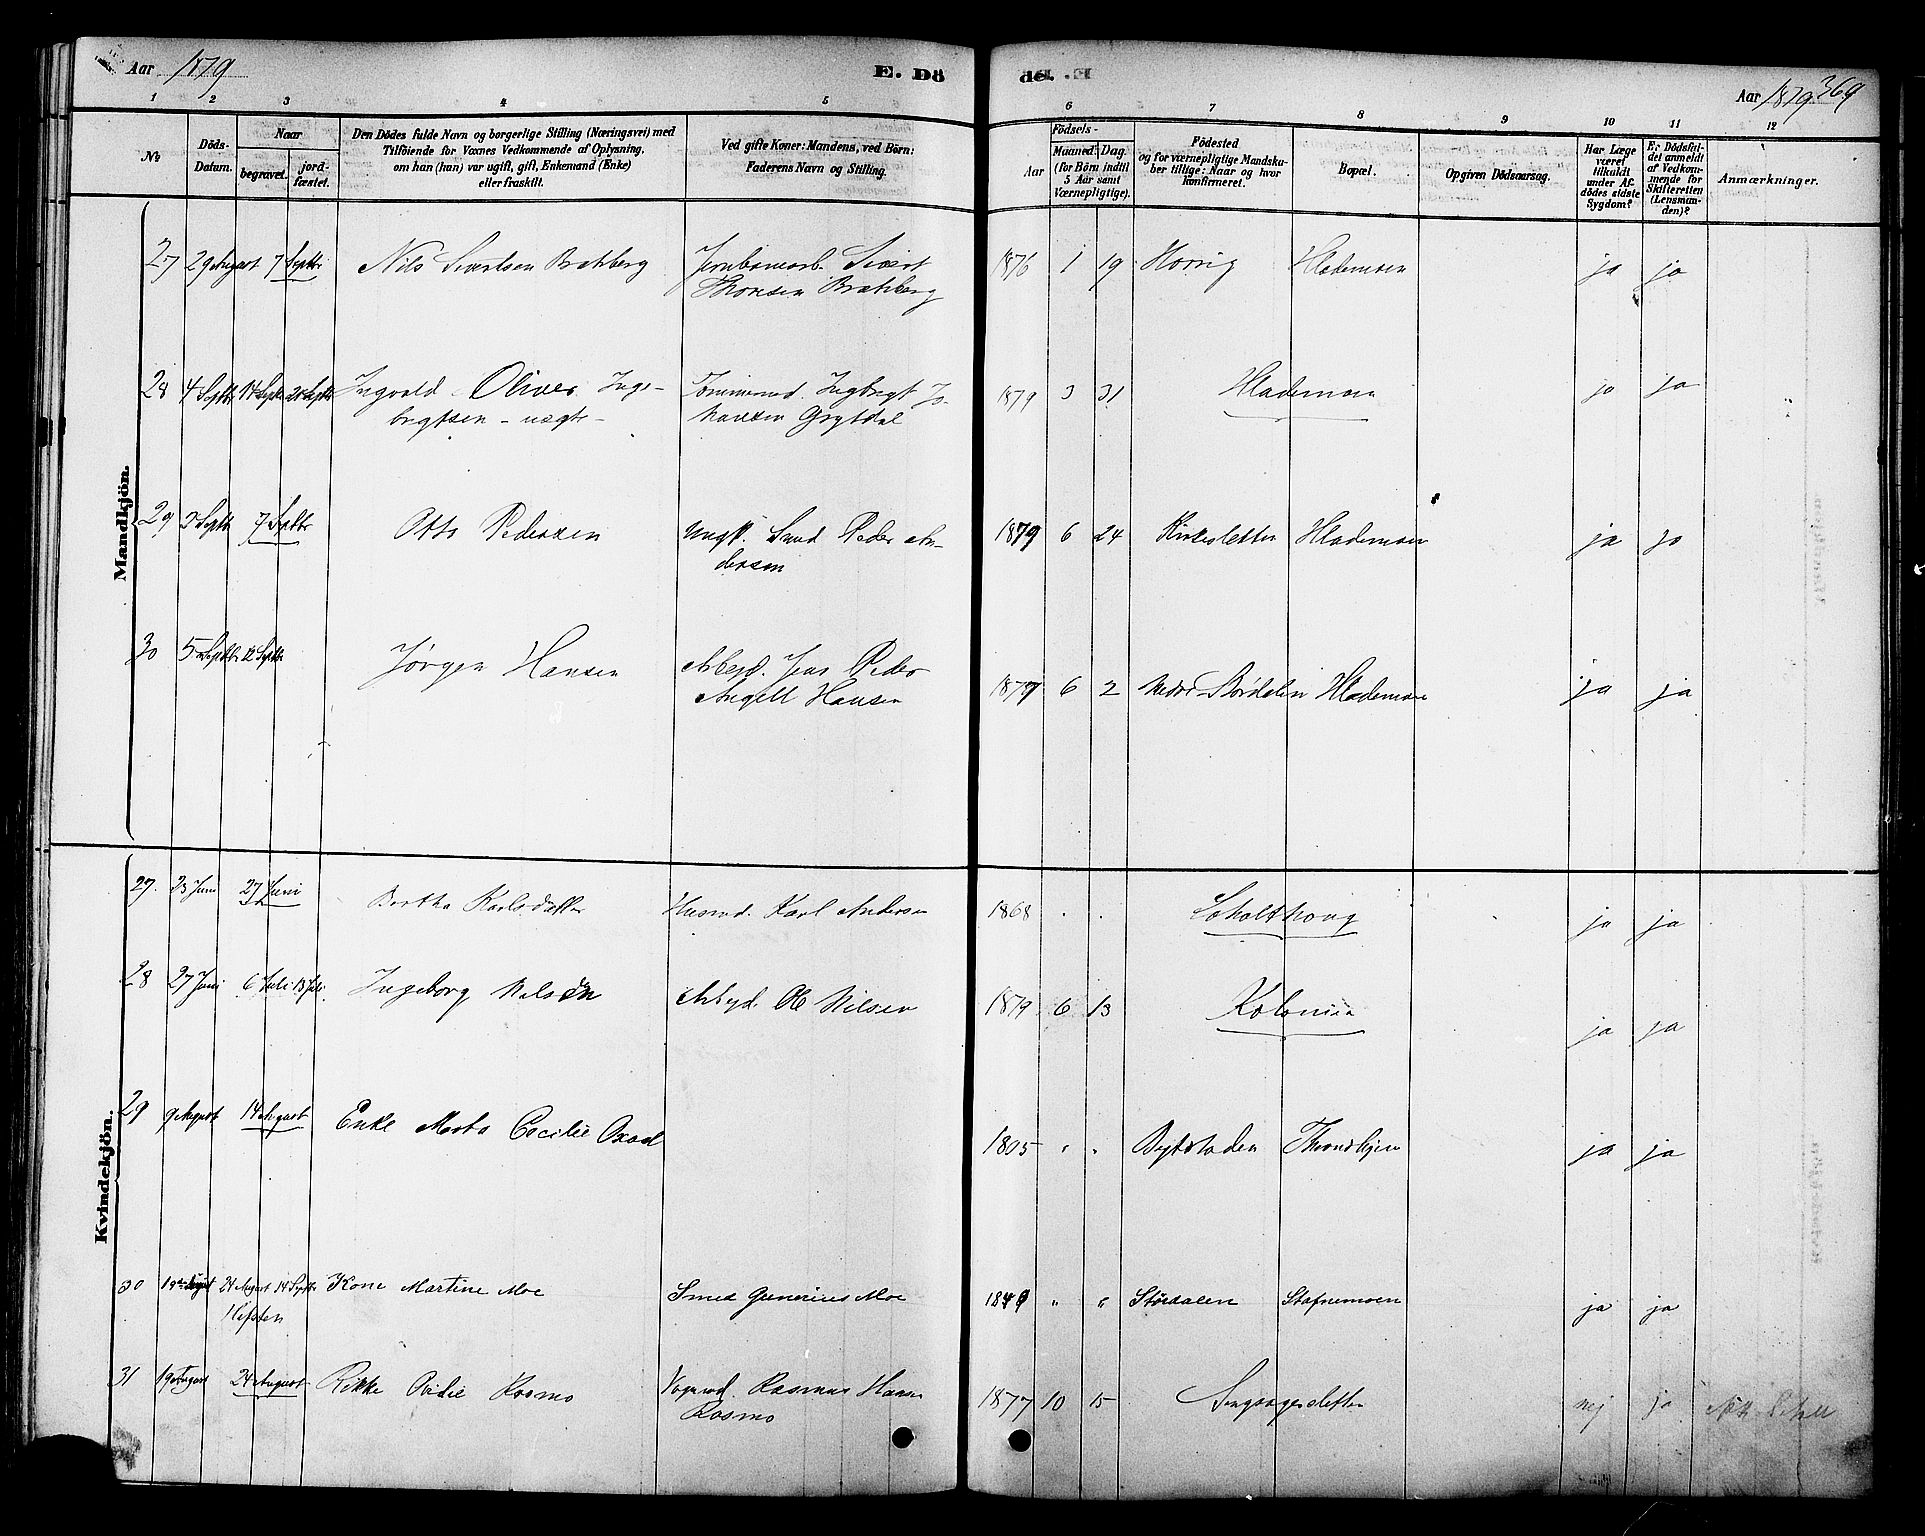 Aar 1879
E. Dö
de.
Aar 1879
369
1 2 3 4 5 6 7 8 9 10 11 12
No
Döds-Datum.
Naar
begravet.
jord-fæstet.
Den Dödes fulde Navn og borgerlige Stilling (Næringsvei) med
Tilföiende for Voxnes Vedkommende af Oplysning,
om han (hun) var ugift, gift, Enkemand (Enke)
eller fraskilt.
Ved gifte Koner: Mandens, ved Börn:
Faderens Navn og Stilling.
Födsels-
Aar
Maaned.
Dag.
(for Börn indtil
5 Aar samt
Værnepligtige).
Födested
og for værnepligtige Mandska-
ber tillige: Naar og hvor
konfirmeret.
Bopæl.
Opgiven Dödsaarsag.
Har Læge
været
tilkaldt
under Af-
dödes sidste
Sygdom?
Er Dödsfal-
det anmeldt
af Vedkom-
mende for
Skifteretten
(Lensman-
den)?
Anmærkninger.
Mandkjön.
27 29 August 7 Septbr Nils Sivertsen Brækberg Jernbanearb. Sivert
Thorsen Brækberg 1876 1 19 Horrig Hlademoen ja ja
28 4 Septbr 14 Septbr Ingvald Oliver Inge-
brigtsen - uægte - Tømmermd. Ingbrigt Jo-
hansen Grytdal 1879 3 31 Hlademoen ja ja
29 3 Septbr 7 Septbr Otto Pedersen Ungk. Smed Peder An-
dersen 1879 6 24 Kirkesletten Hlademoen ja ja
30 5 Septbr 12 Septbr Jørgen Hansen Arbejd. Jens Peder
Angell Hansen 1877 6 2 Nedre Størdalen Hlademoen ja ja
Kvindekjön.
27. 23 Juni 27 Juni Bertha Karlsdatter Husmd. Karl Andersen 1868 ja ja
28 27 Juni 6 Juli 13 Juli Ingeborg Nilsdtr Arbejd. Ole Nilsen 1879 6 13 Kolonien ja ja
29 9 August 14 August Enke Marta Cecilie 1805 " " Bynesladen Throndhjem ja ja
30 19 August 24 August 14 Septbr Kone Martine Moe Smed Gunerius Moe 1849 " " Størdalen Stafnemoen ja ja
31 19 August 24 August Rikke Rosmo Vognmd. Rasmus Hansen
Rosmo 1877 10 15 Singsagersletten nej ja